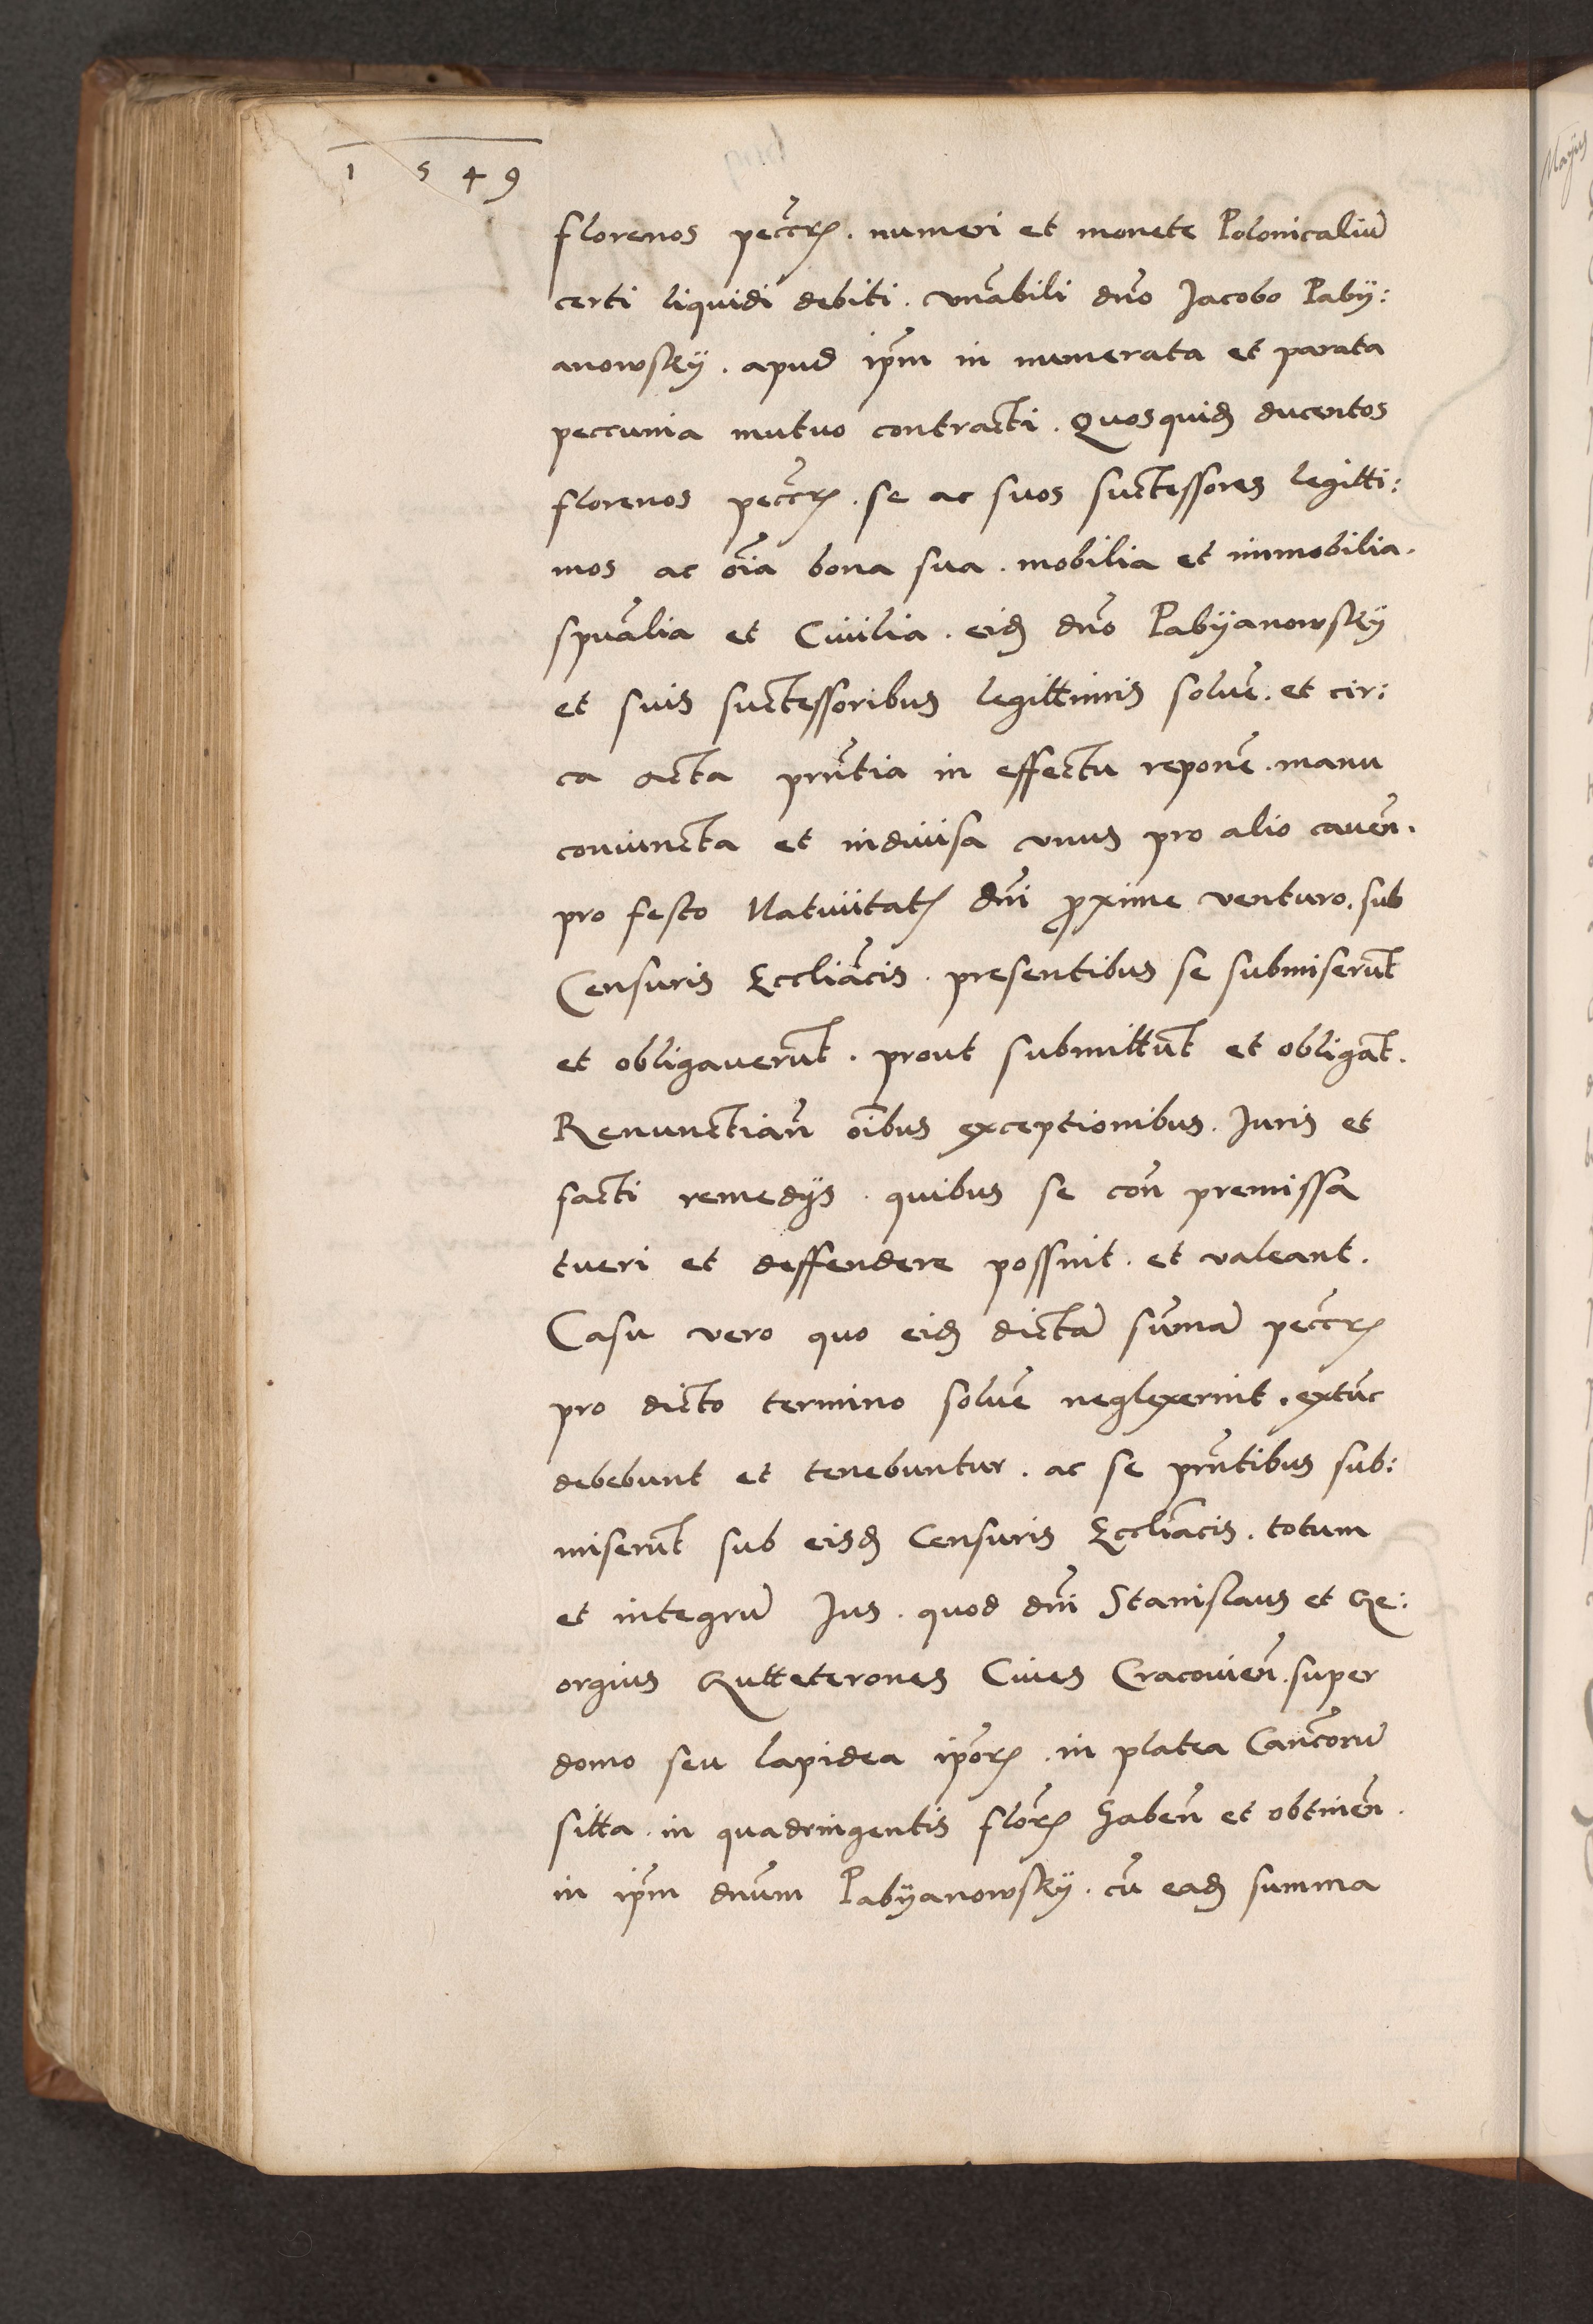 1549
florenos pecc̄rꝭ. numeri et monete Polonicaliū
certi liquidi debiti. vn̄abili dn̄o Jacobo Paby:
anowsky. apud ip̄m in numerata et parata
peccunia mutuo contracti. Quosquidꝫ ducentos
florenos pecc̄rꝭ. se ac suos successores legitti:
mos ac oīa bona sua. mobilia et immobilia.
spūalia et Ciuilia. eidꝫ dn̄o Pabyanowsky
et suis successoribus legittimis soluē. et cir:
ca acta pn̄tia in effectu reponē. manu
coniuncta et indiuisa vnus pro alio cauen̄.
pro festo Natiuitatꝭ dn̄i ꝓxime venturo. sub
Censuris Eccliācis. presentibus se submiserūt
et obligauerūt. prout submittūt et obligāt.
Renunctian̄ oībus exceptionibus. Juris et
facti remedijs. quibus se con̄ premissa
tueri et deffendere possint. et valeant.
Casu vero quo eidꝫ dictā sūmā pecc̄rꝭ
pro dicto termino soluē neglexerint. extūc
debebunt et tenebuntur. ac se pn̄tibus sub:
miserūt sub eisdꝫ Censuris Eccliācis. totum
et integrū Jus. quod dn̄i Stanislaus et Ge:
orgius Gutteterones Ciues Cracouien̄. super
domo seu lapidea ip̄orꝭ. in platea Can̄corū
sitta. in quadringentis flōrꝭ haben̄ et obtinen̄.
in ip̄m dnūm Pabyanowsky. cū eadꝫ summa